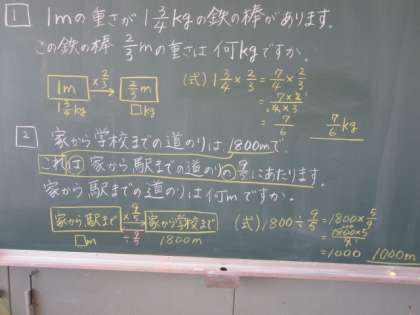 1 1mの重さが 1 3/4 kgの鉄の棒があります。
この鉄の棒 2/3 mの重さは何kgですか。
1m ×2/3 → 2/3m
1 3/4 kg □kg
(式) 1 3/4 × 2/3 = 7/4 × 2/3
= 7×2 1/4×3
= 7/6
7/6 kg
2 家から学校までの道のりは1800mで、
これは家から駅までの道のりの 9/5 にあたります。
家から駅までの道のりは何mですか。
家から駅まで ×9/5 → 家から学校まで
□m ÷9/5 1800m
(式) 1800÷9/5 = 1800×5/9
= 1800×5/9
= 1000
1000m